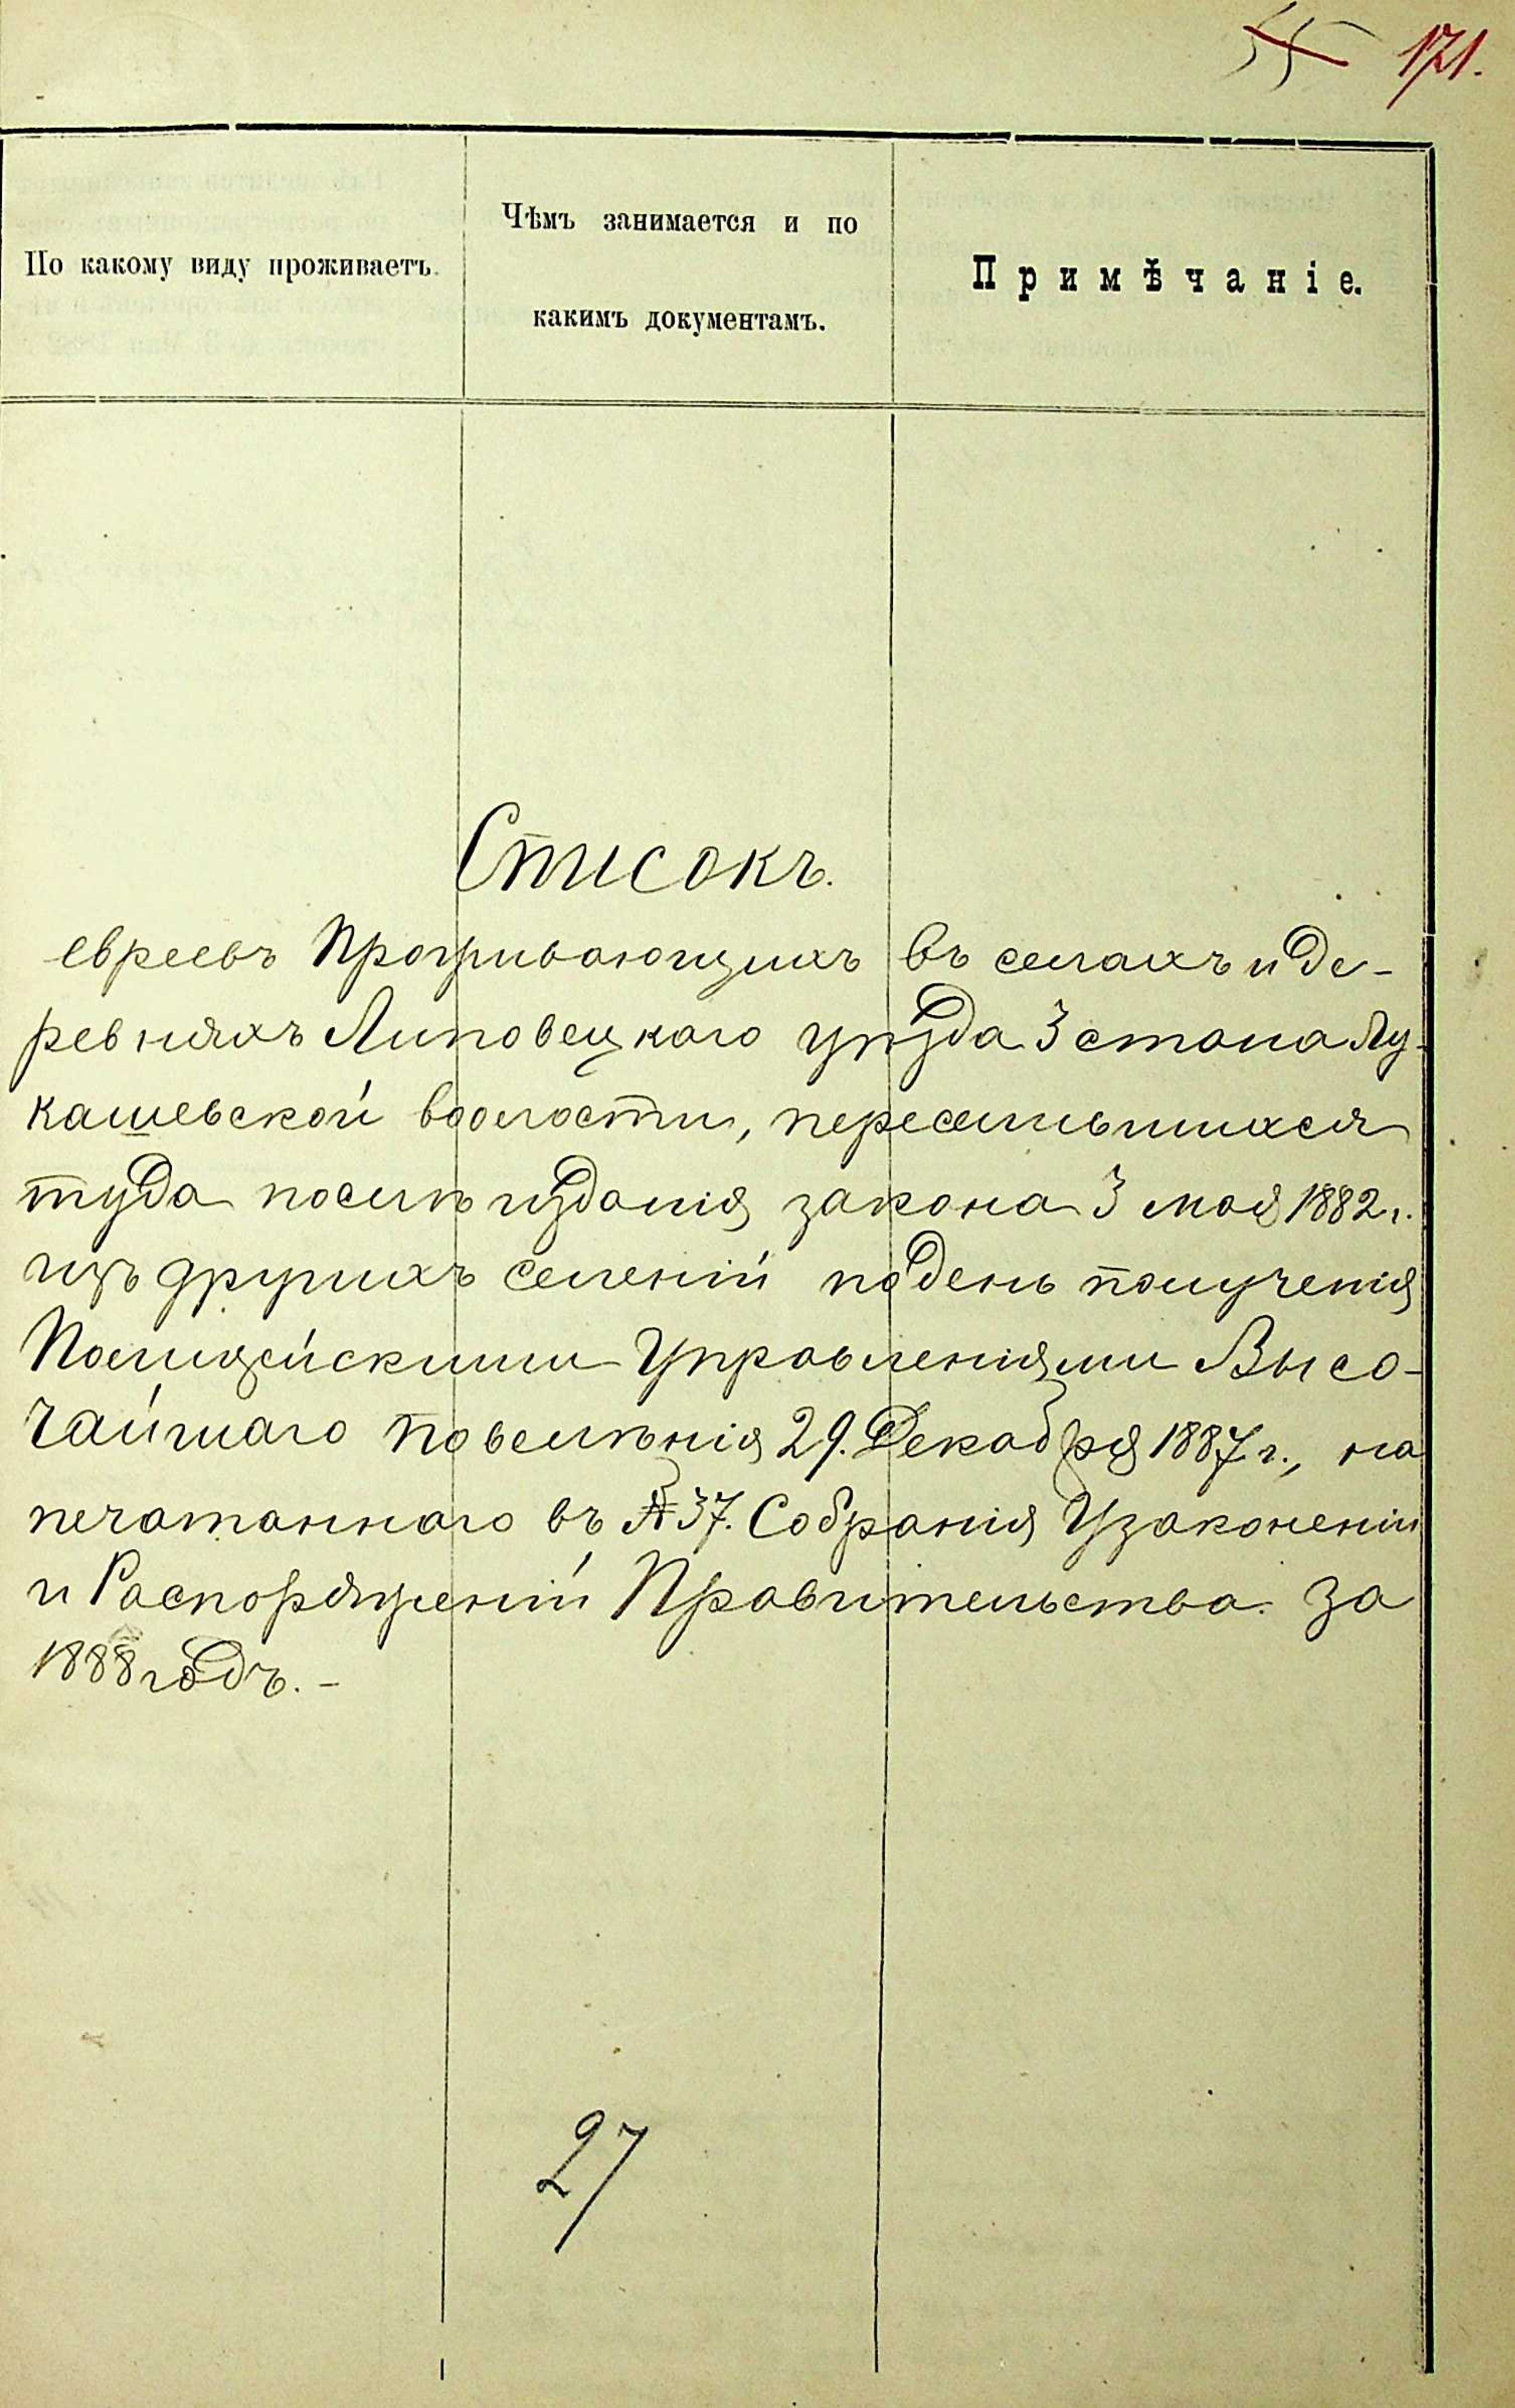 55 171.
По какому виду проживаетъ.
Чѣмъ занимается и по
какимъ документамъ.
Примѣчаніе.
Списокъ.
евреевъ проживающихъ въ селахъ и де-
ревняхъ Липовецкаго уѣзда 3 стана Лу-
кашевской волости, переселившихся
туда послѣ изданія закона 3 мая 1882 г.
изъ другихъ селеній по день полученія
Полицейскими Управленіями Высо-
чайшаго повелѣнія 29. Декабря 1887 г., на
печатаннаго въ № 37. Собранія Узаконеній
и Распоряженій Правительства. за
1888 годъ. -
27